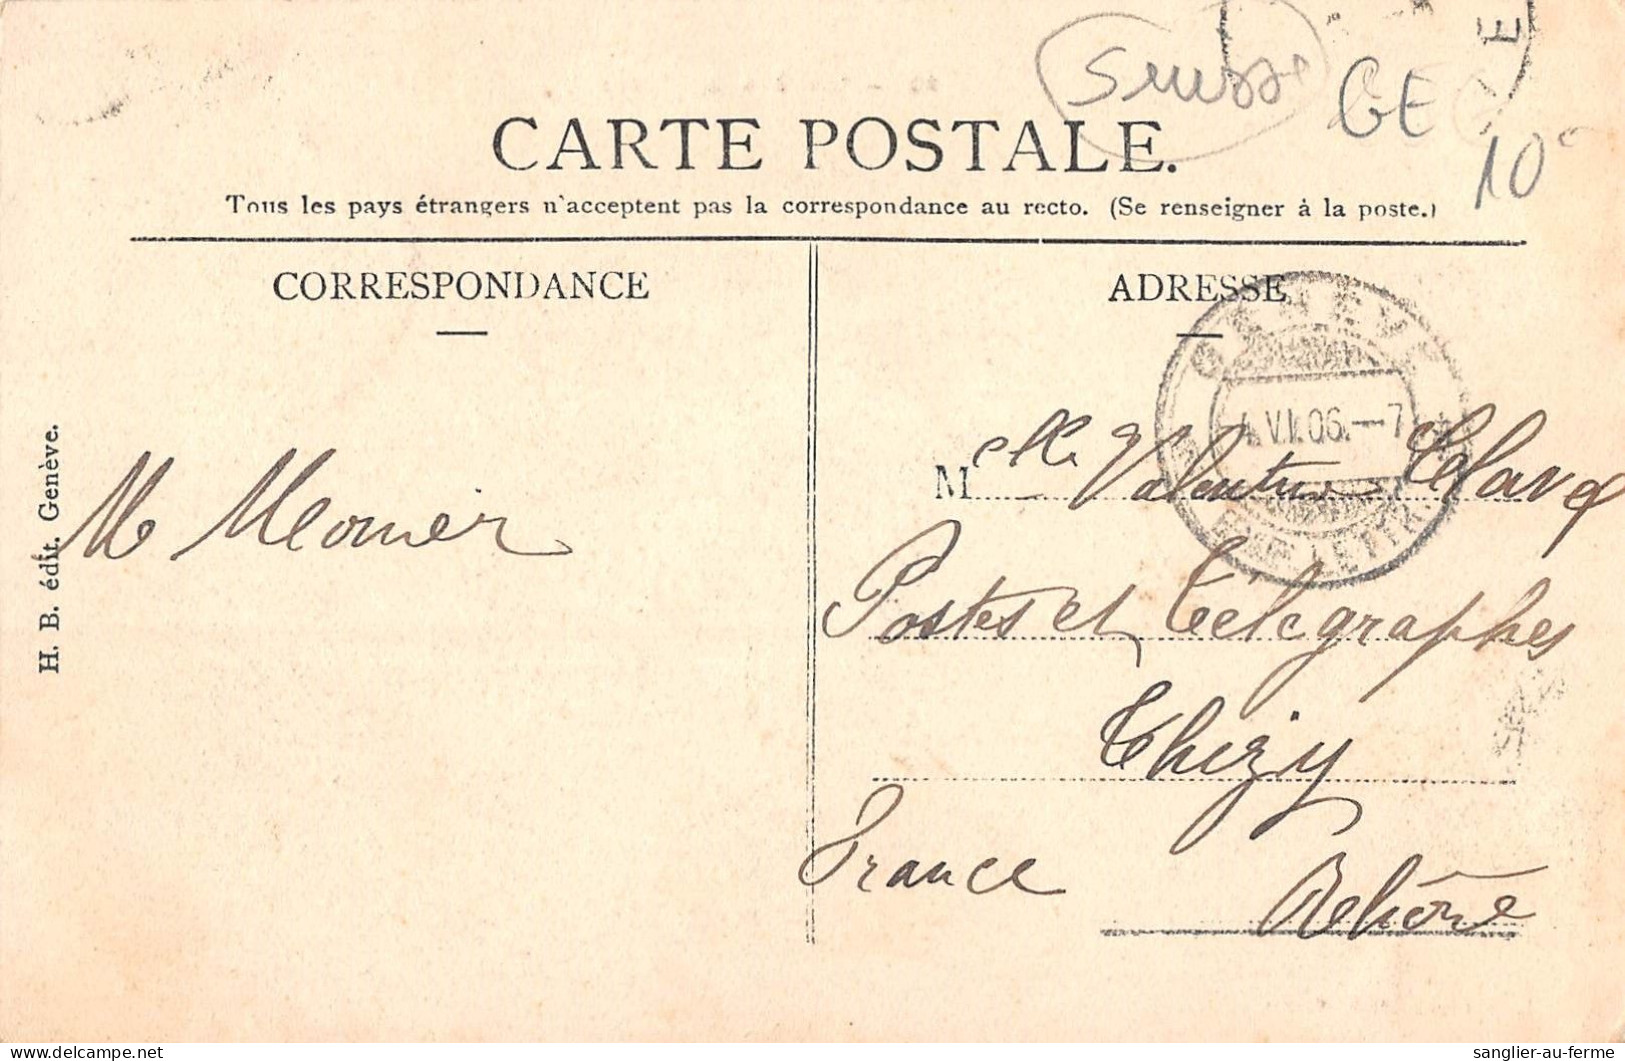 Suisse
GE
10c
CARTE POSTALE.
Tous les pays étrangers n'acceptent pas la correspondance au recto. (Se renseigner à la poste.)
CORRESPONDANCE
ADRESSE
GENÈVE
VI.06.—7
LETTR.
H. B. édit. Genève.
M
Melle Valentine
Postes et Télégraphes
Thizy
France
Rhône
sanglier-au-ferme